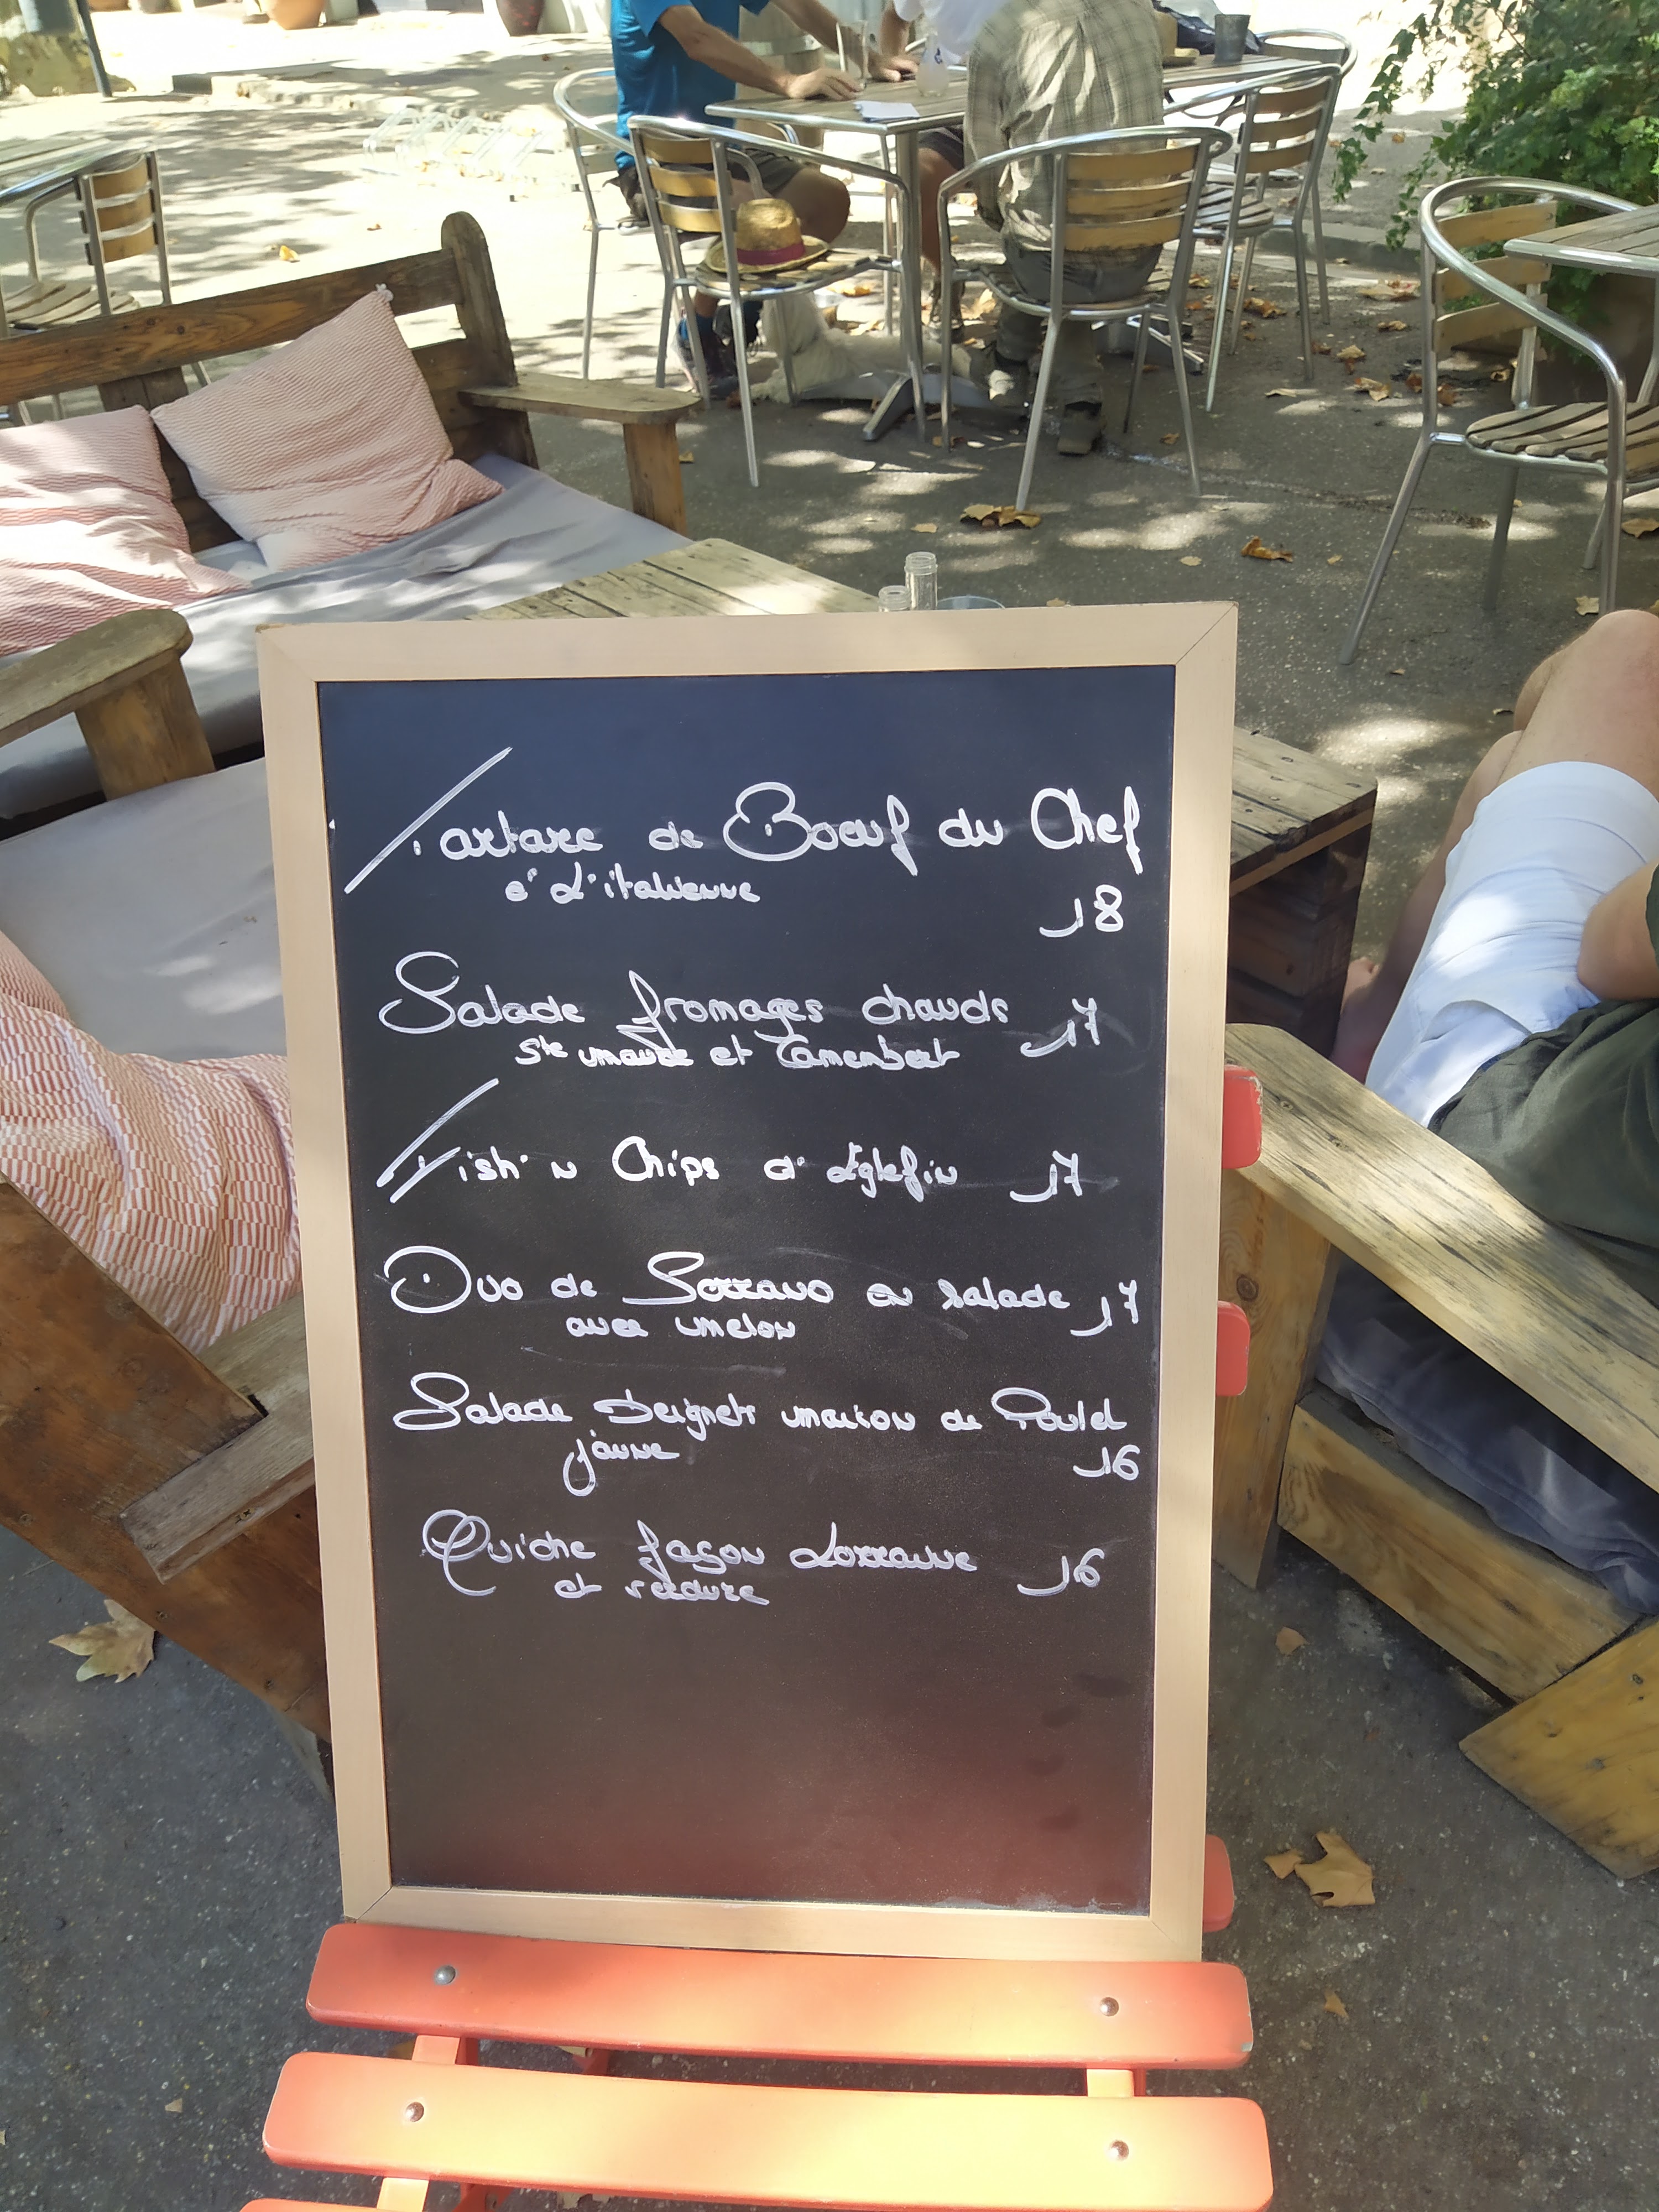 Tartare de Boeuf du Chef
à L'italienne
18
Salade fromages chauds 17
Ste maure et Camembert
Fish'n Chips d'Eglefin 17
Duo de Serrano en salade 17
avec melon
Salade Beignets maison de Poulet
jaune
16
Quiche façon Lorraine 16
et verdure